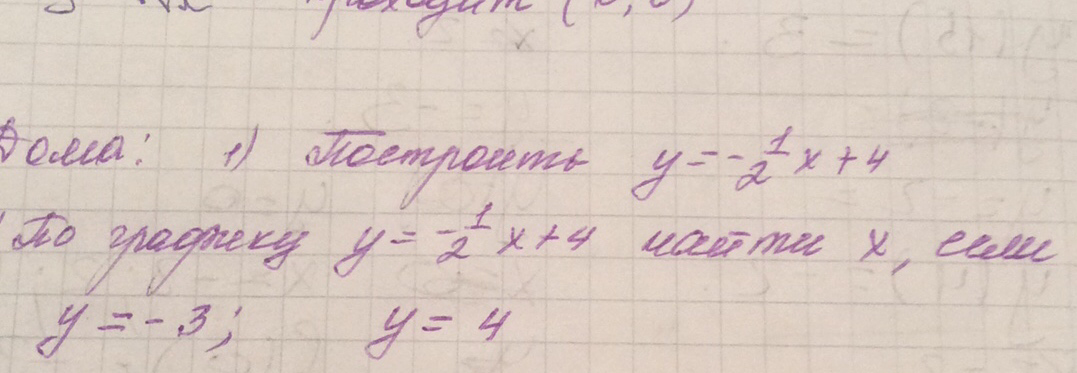 проходит (0; 0)
Дома: 1) Построить y = -1/2 x + 4
По графику y = -1/2 x + 4 найти x, если
y = -3; y = 4